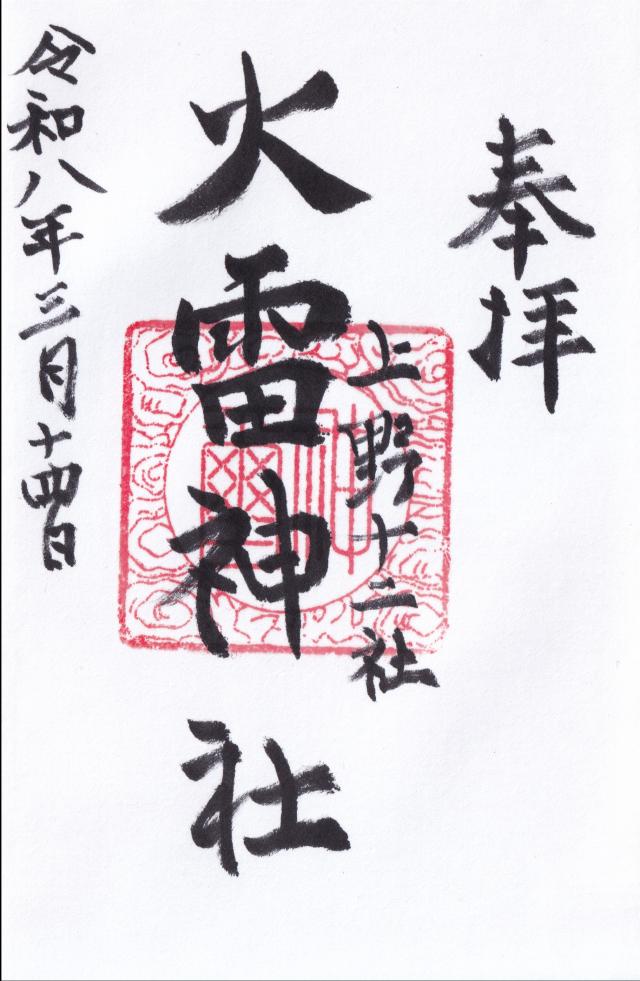 奉拝
上野十二社
火雷神社
令和八年三月十四日